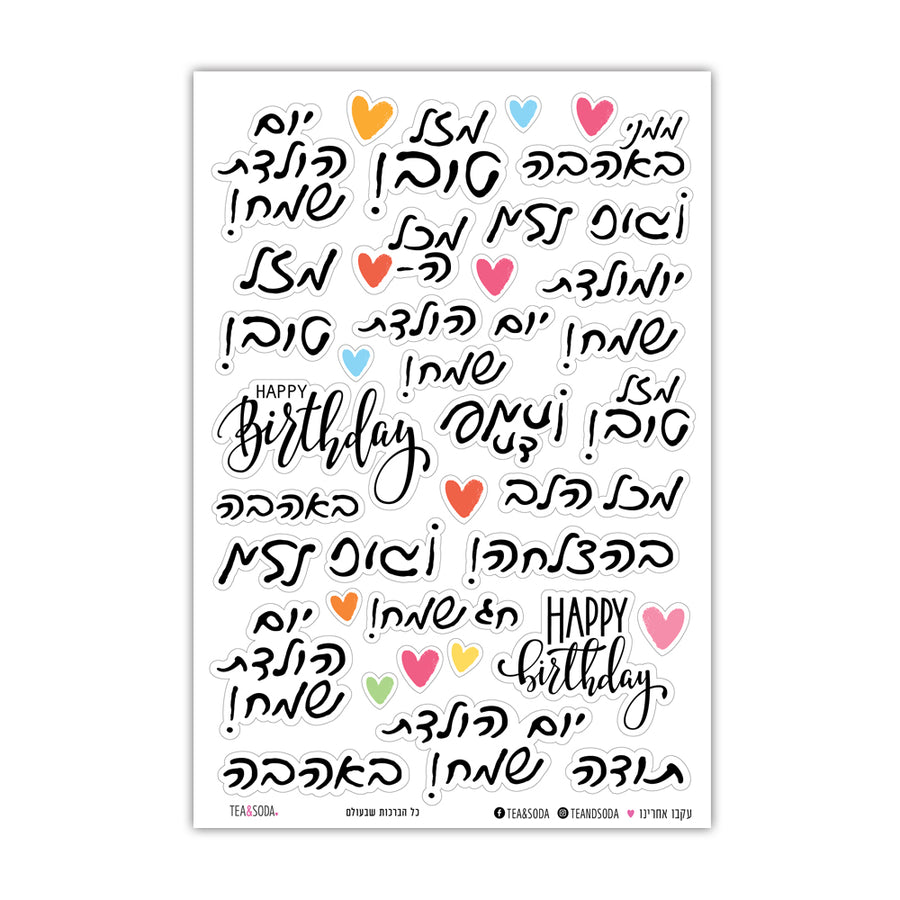 יום
הולדת
שמח!
מזל
טוב!
ממני
באהבה
מזל טוב!
מכל
ה-
מזל
טוב!
יומולדת
שמח!
יום הולדת
שמח!
HAPPY
Birthday
מזל
טוב!
מכל הלב
באהבה
מזל טוב!
בהצלחה!
חג שמח!
יום
הולדת
שמח!
HAPPY
birthday
יום הולדת
שמח!
באהבה
תודה
TEA&SODA.
כל הברכות שבעולם
TEA&SODA
TEANDSODA
עקבו אחרינו